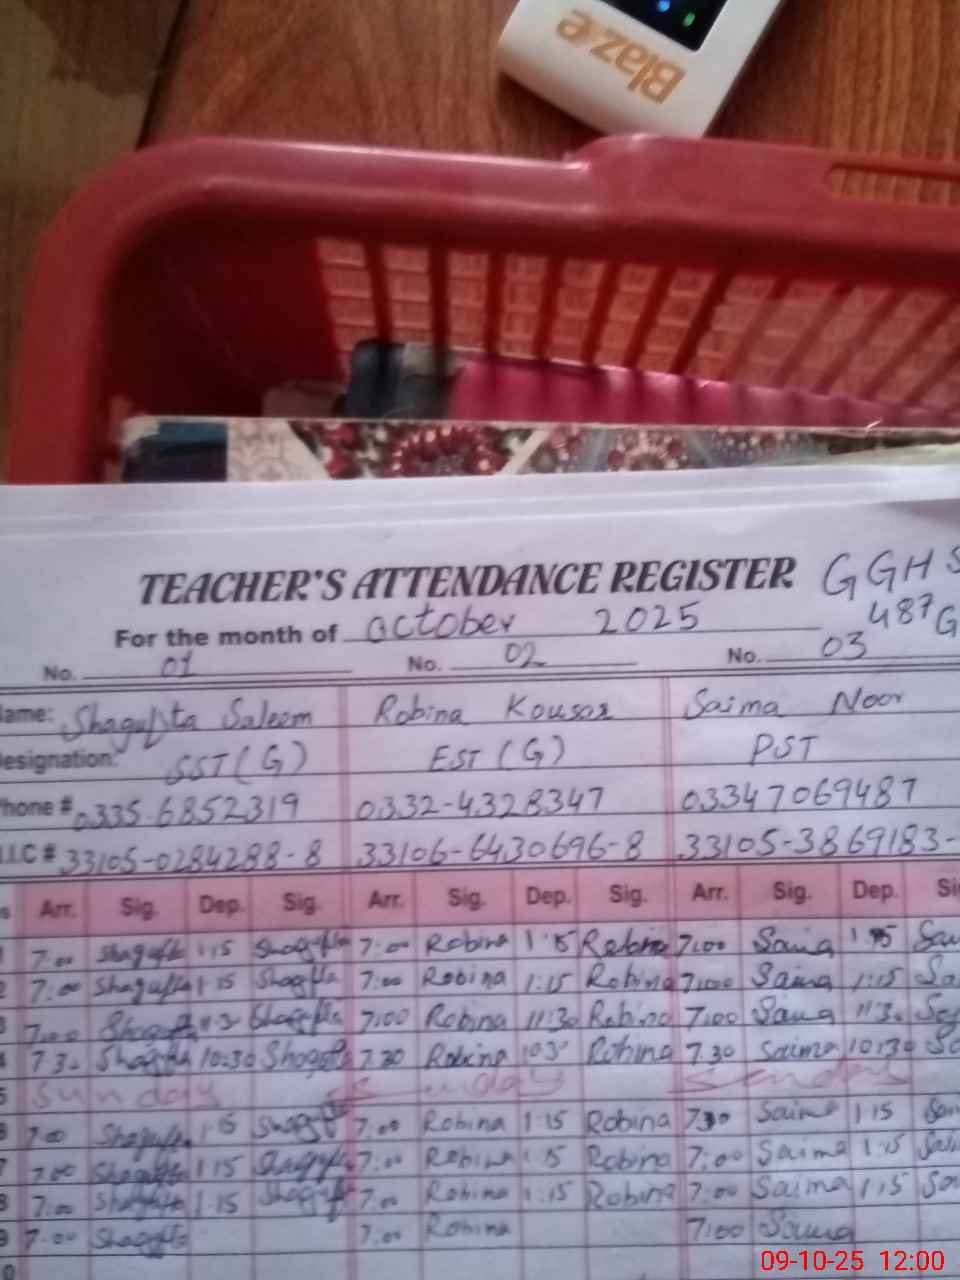 Blaze
TEACHER'S ATTENDANCE REGISTER GGHS
For the month of October 2025 487 G
No. 01 No. 02 No. 03
Name: Shagufta Saleem Robina Kousar Saima Noor
Designation: SST (G) EST (G) PST
Phone # 0335-6852319 0332-4328347 03347069487
33105-0284288-8 33106-6430696-8 33105-3869183-
Arr. Sig. Dep. Sig. Arr. Sig. Dep. Sig. Arr. Sig. Dep.
7:00 Shagufta 1:15 Shagufta 7:00 Robina 1:15 Robina 7:00 Saima 1:15
2 7:00 Shagufta 1:15 Shagufta 7:00 Robina 1:15 Robina 7:00 Saima 1:15
7:00 Shagufta 7:00 Robina 11:30 Robina 7:00 Saima 11:30
7.30 Shagufta 10:30 Shagufta 7.30 Robina Robina 7.30 Saima 10:30
5 Sunday Sunday Sunday
7:00 Shagufta 1:15 Shagufta 7:00 Robina 1:15 Robina Saima 1:15
7:00 Shagufta 1:15 Shagufta 7:00 Robina Robina 7:00 Saima 1:15
7:00 Shagufta 1:15 Shagufta 7:00 Robina 1:15 Robina 7:00 Saima 1:15
7:00 Shagufta 7:00 Robina 7:00 Saima
09-10-25 12:00